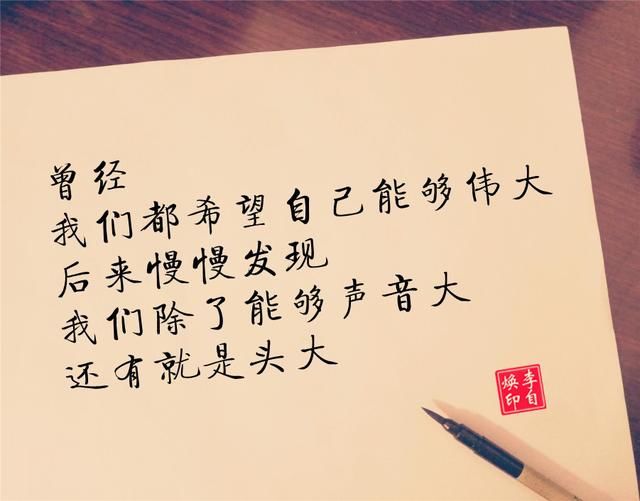 曾经
我们都希望自己能够伟大
后来慢慢发现
我们除了能够声音大
还有就是头大
李自
焕印